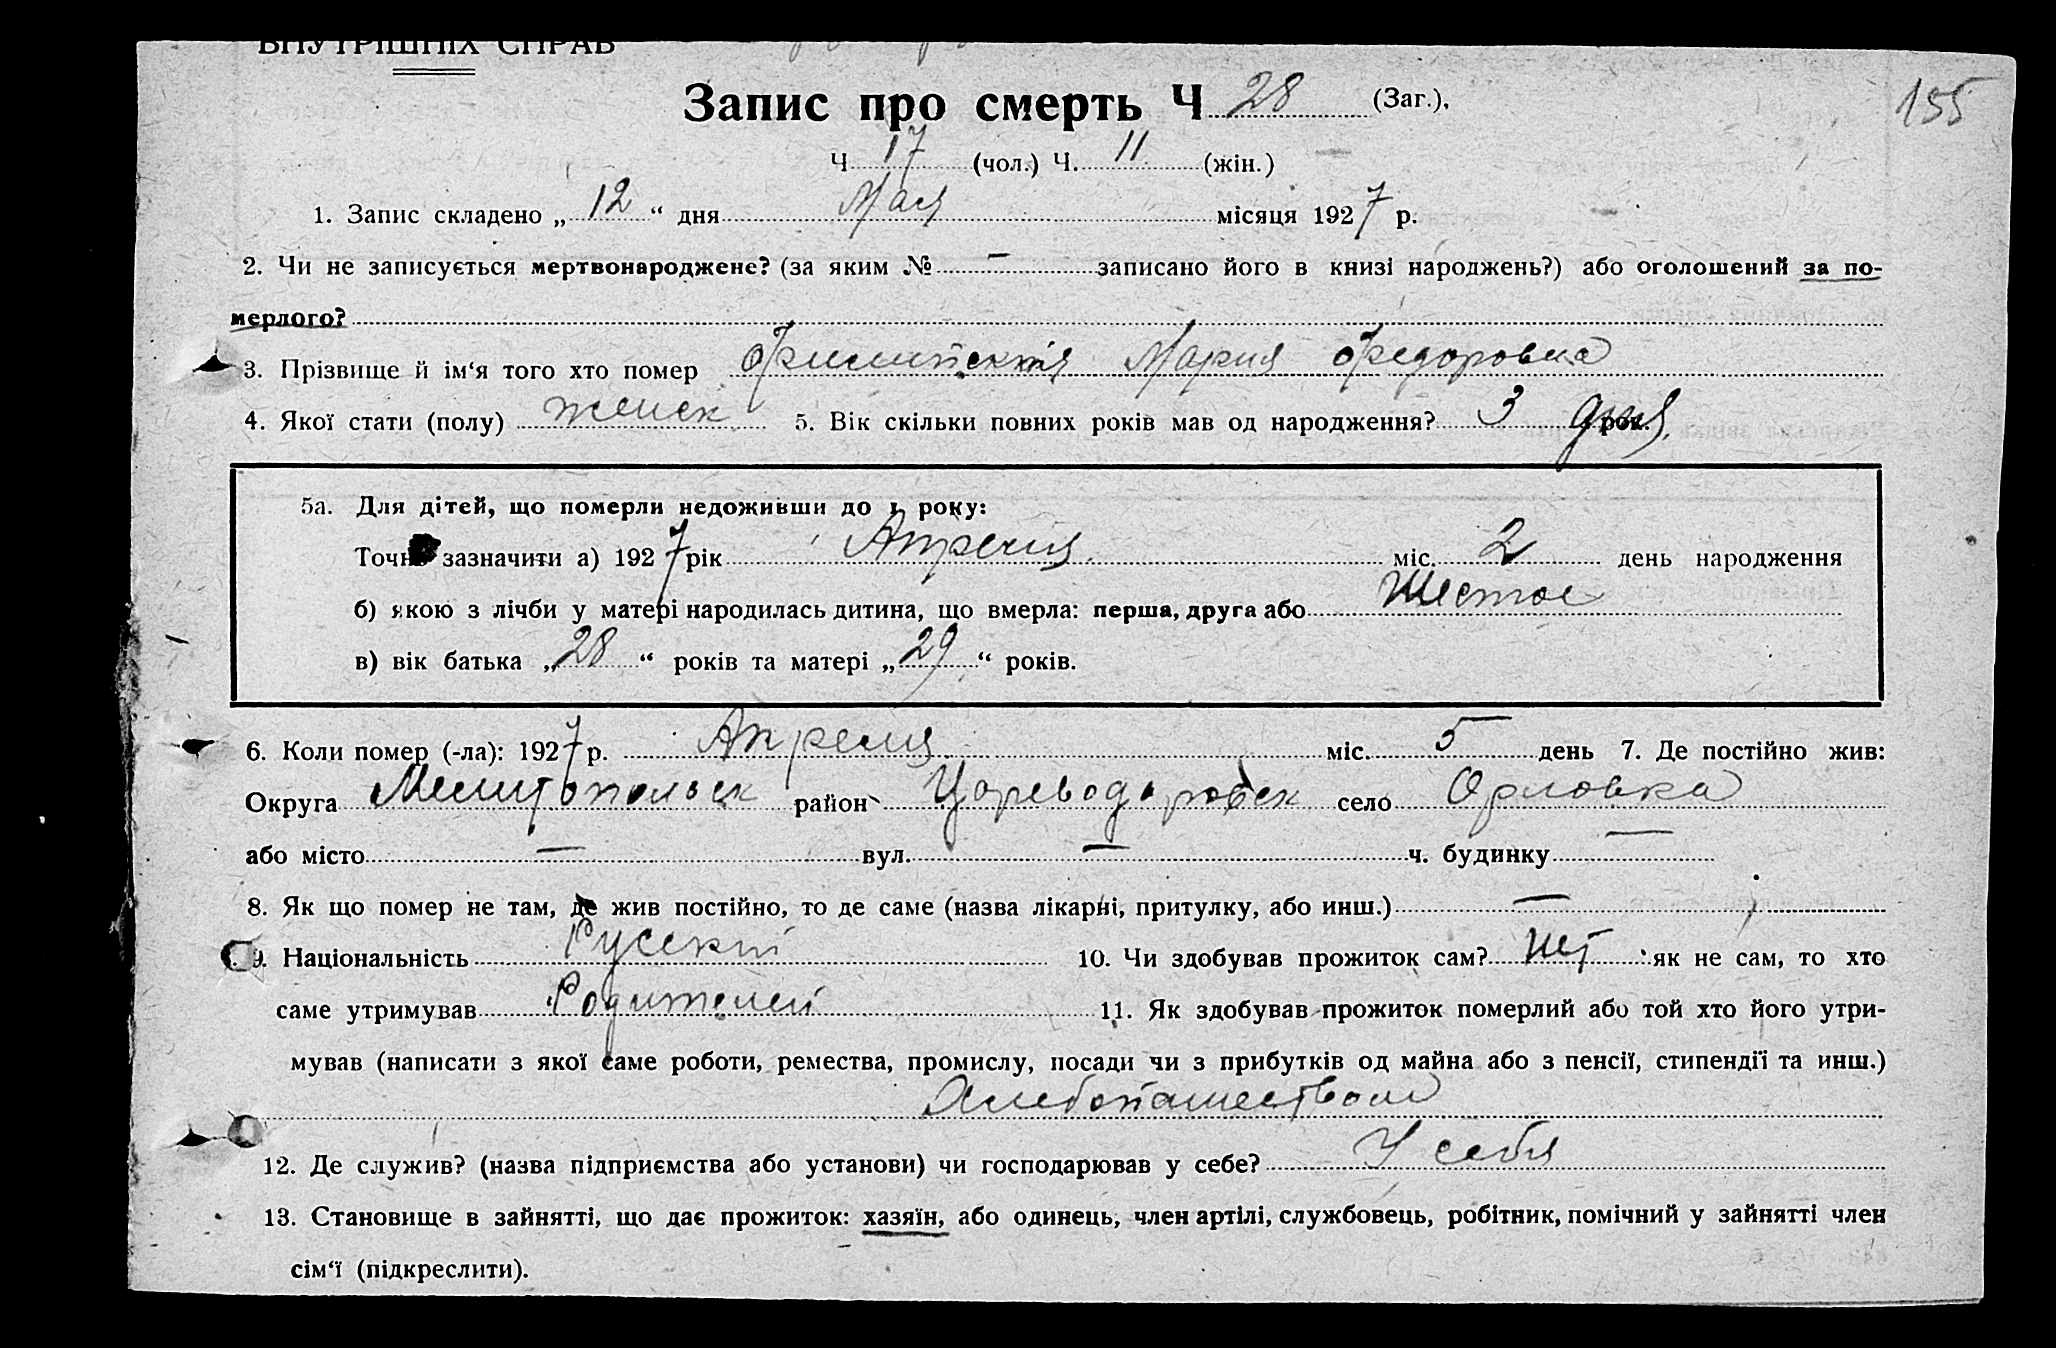 ВНУТРІШНІХ СПРАВ
Запис про смерть Ч 28 (Заг.),
155
Ч 17 (чол.) Ч. 11 (жін.)
1. Запис складено „ 12 “ дня Мая місяця 1927 р.
2. Чи не записується мертвонароджене? (за яким № — записано його в книзі народжень?) або оголошений за по-
мерлого?
3. Прізвище й ім‘я того хто помер Мария Федоровна
4. Якої стати (полу) женск 5. Вік скільки повних років мав од народження? 3 дня рок.
5а. Для дітей, що померли недоживши до 1 року:
Точно зазначити а) 1927 рік Апреля міс. 2 день народження
б) якою з лічби у матері народилась дитина, що вмерла: перша, друга або Шестое
в) вік батька „ 28 “ років та матері „ 29 “ років.
6. Коли помер (-ла): 1927 р. Апреля міс. 5 день 7. Де постійно жив:
Округа Мелитопольск район Цареводаровск село Орловка
або місто — вул. — ч. будинку —
8. Як що помер не там, де жив постійно, то де саме (назва лікарні, притулку, або инш.) —
9. Національність Русский 10. Чи здобував прожиток сам? Нет як не сам, то хто
саме утримував Родителей 11. Як здобував прожиток померлий або той хто його утри-
мував (написати з якої саме роботи, ремества, промислу, посади чи з прибутків од майна або з пенсії, стипендії та инш.)
Хлебопашеством
12. Де служив? (назва підприємства або установи) чи господарював у себе? У себя
13. Становище в зайнятті, що дає прожиток: хазяїн, або одинець, член артілі, службовець, робітник, помічний у зайнятті член
сім‘ї (підкреслити).